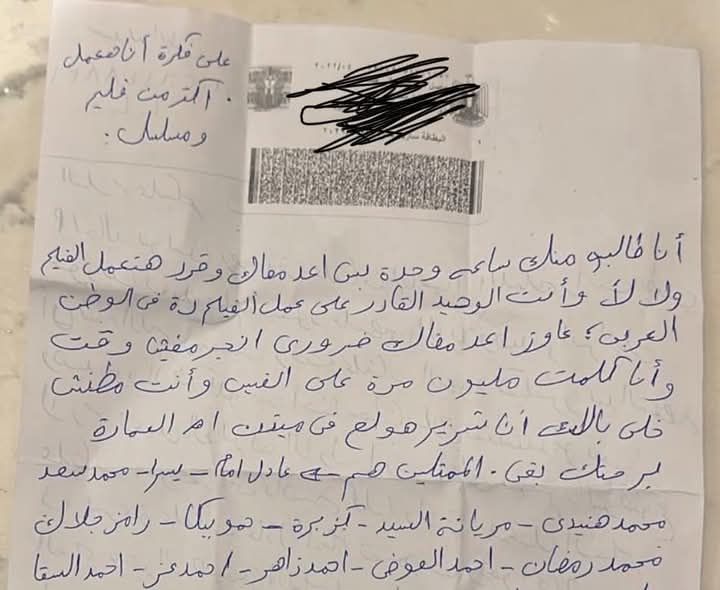 على فكرة أنا هعمل
أكتر من فيلم
ومسلسل.
٢٠٢٢/٠٤
البطاقة سارية
أنا طالبه منك ساعه وحدة بس اعد معاك وقرر هتعمل الفيلم
ولا لأ وأنت الوحيد القادر على عمل الفيلم دة فى الوطن
العربى؛ عاوز اعد معاك ضرورى انجز مفيش وقت
وأنا كلمت مليون مرة على الفيس وأنت مطنش
خلى بالك أنا شرير هولع فى ميتين ام العمارة
لبرحتك بقى. الممثلين هم عادل امام - يسرا - محمد سعد
محمد هنيدى - مريانة السيد - كزبرة - حمو بيكا - رامز جلال
محمد رمضان - احمد العوضى - احمد زاهر - احمد عز - احمد السقا